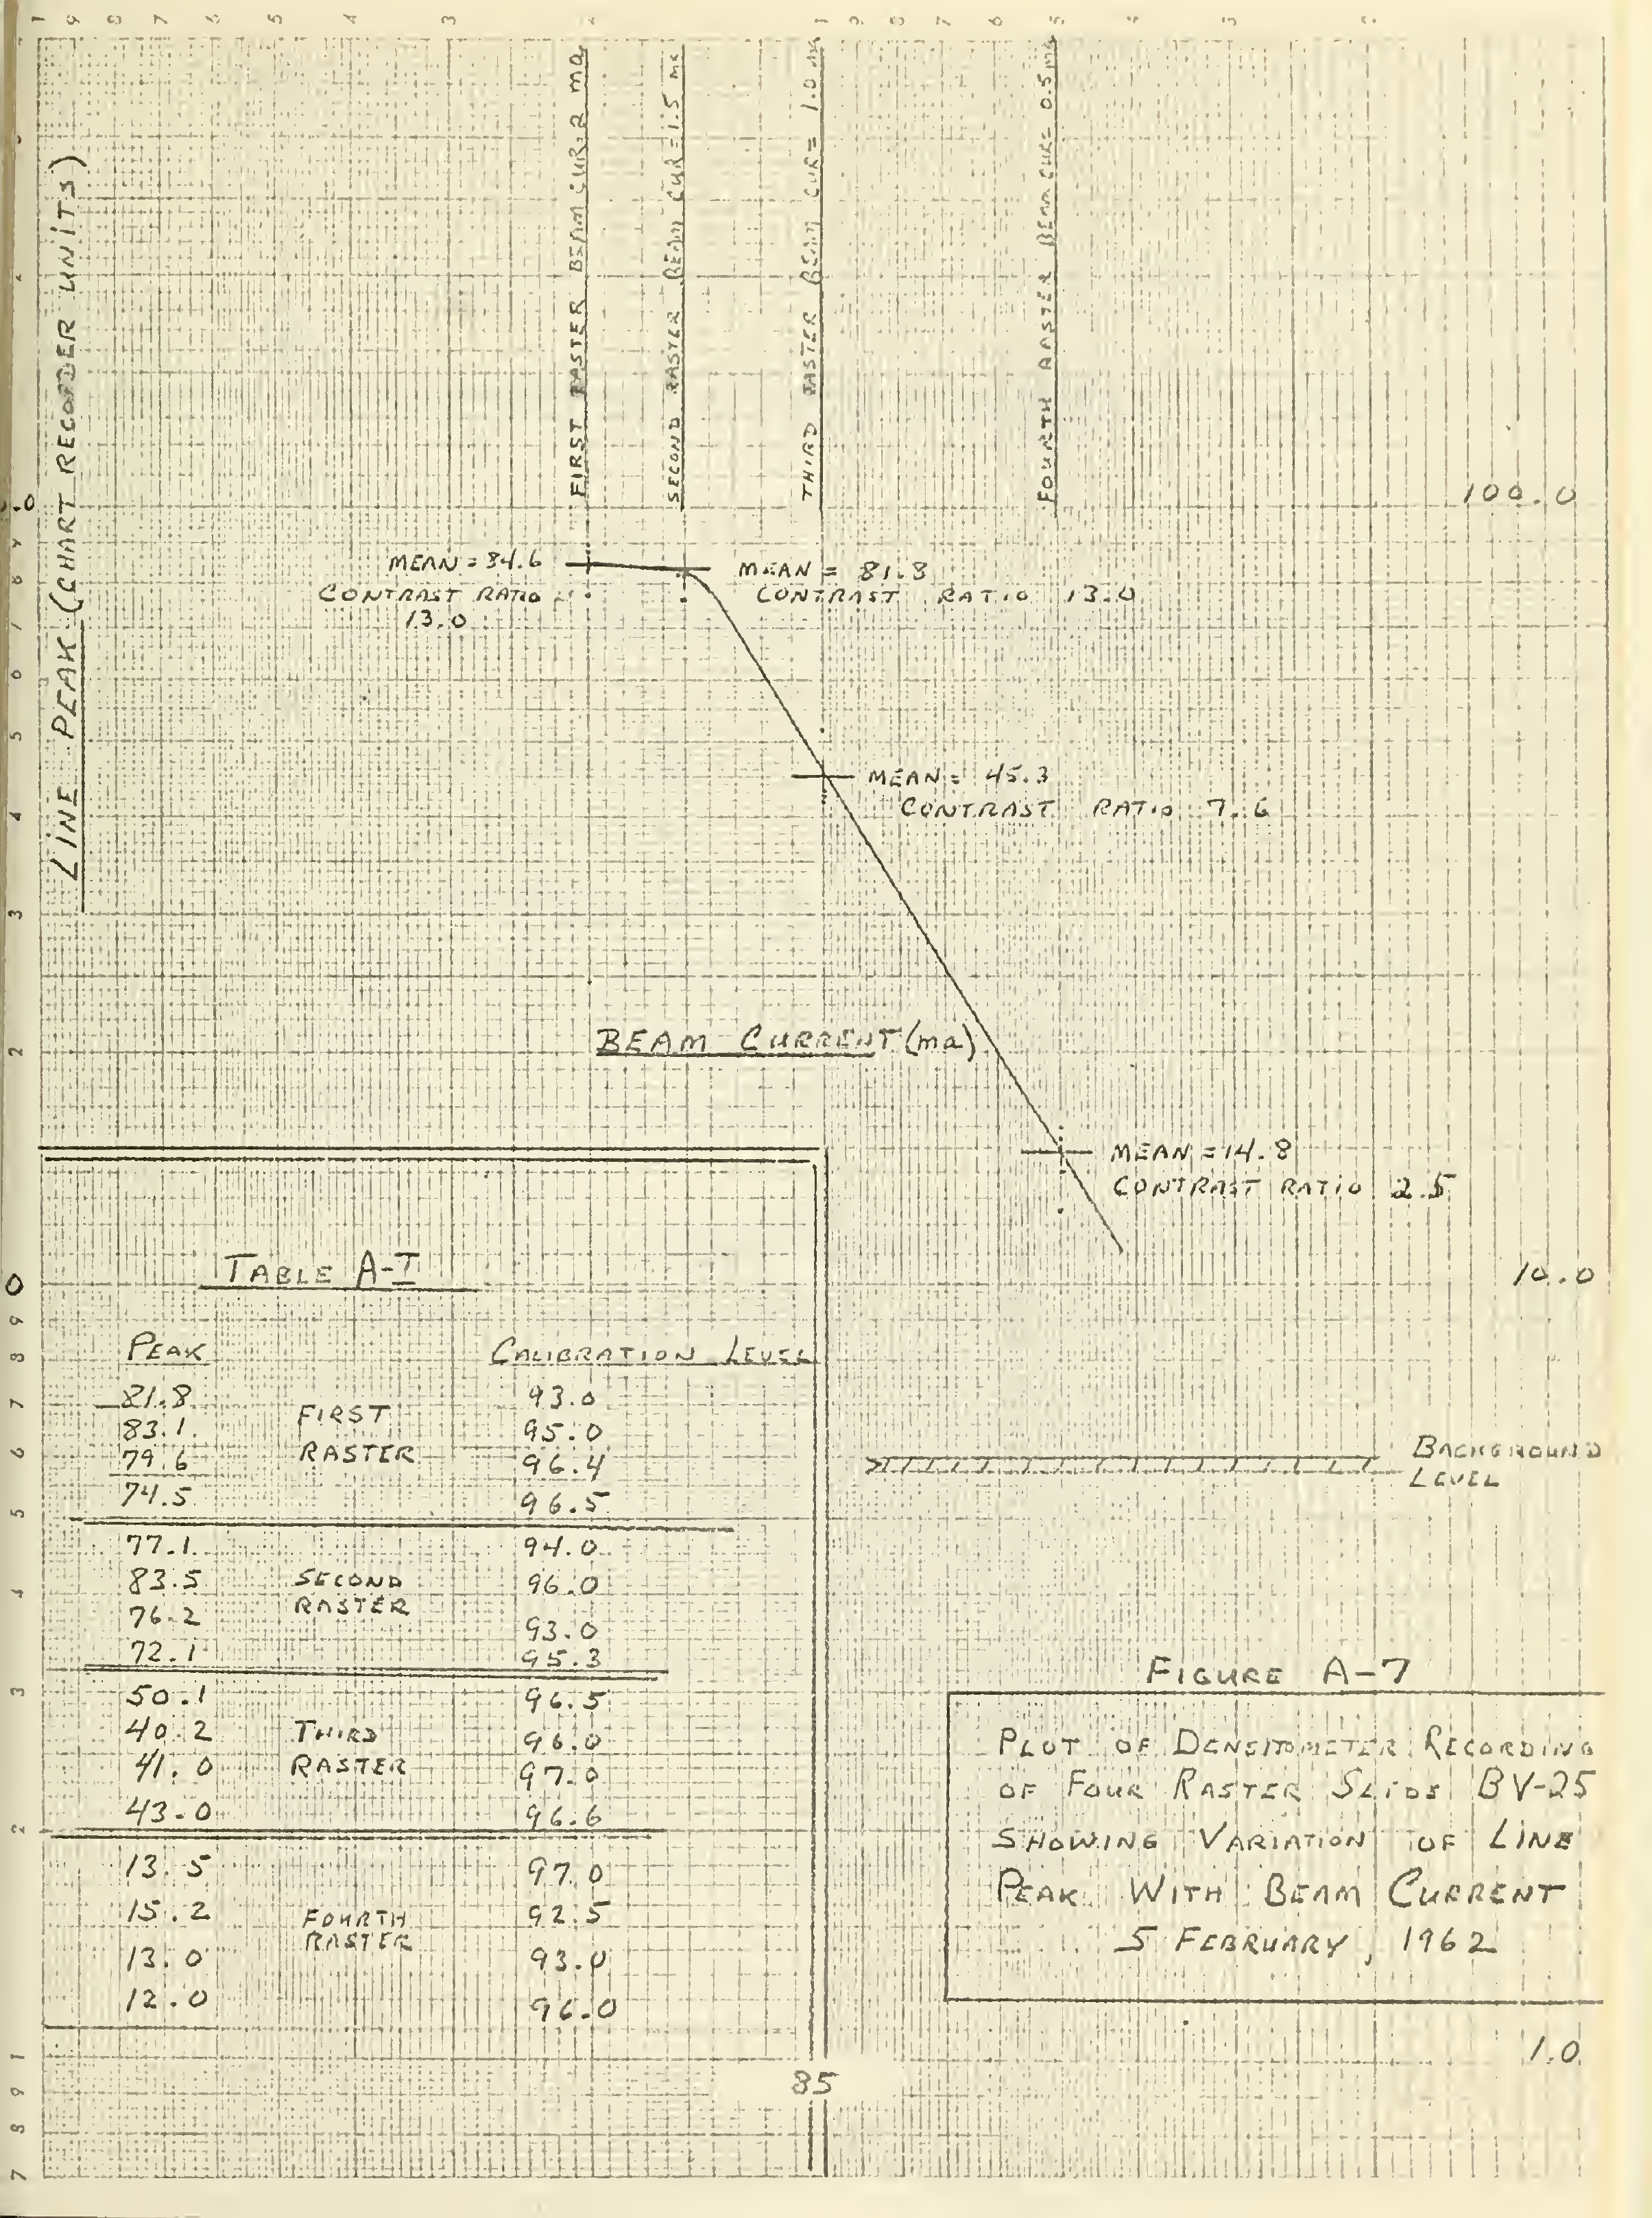 1 9 8 7 6 5 4 3 2 1 9 8 7 6 5 4 3 2
LINE PEAK (CHART RECORDER UNITS)
FIRST RASTER BEAM CUR. 2 ma
SECOND RASTER BEAM CUR = 1.5 ma
THIRD RASTER BEAM CUR = 1.0 ma
FOURTH RASTER BEAM CUR = 0.5 ma
100.0
MEAN = 84.6
CONTRAST RATIO
13.0
MEAN = 81.8
CONTRAST RATIO 13.0
MEAN = 45.3
CONTRAST RATIO 7.6
BEAM CURRENT (ma)
MEAN = 14.8
CONTRAST RATIO 2.5
10.0
BACKGROUND
LEVEL
TABLE A-I
PEAK CALIBRATION LEVEL
81.8 93.0
FIRST
83.1 95.0
RASTER
79.6 96.4
74.5 96.5
77.1 94.0
83.5 SECOND 96.0
RASTER
76.2 93.0
72.1 95.3
50.1 96.5
40.2 THIRD 96.0
41.0 RASTER 97.0
43.0 96.6
13.5 97.0
15.2 FOURTH 92.5
RASTER
13.0 93.0
12.0 96.0
FIGURE A-7
PLOT OF DENSITOMETER RECORDING
OF FOUR RASTER SLIDE BV-25
SHOWING VARIATION OF LINE
PEAK WITH BEAM CURRENT
5 FEBRUARY, 1962
1.0
85